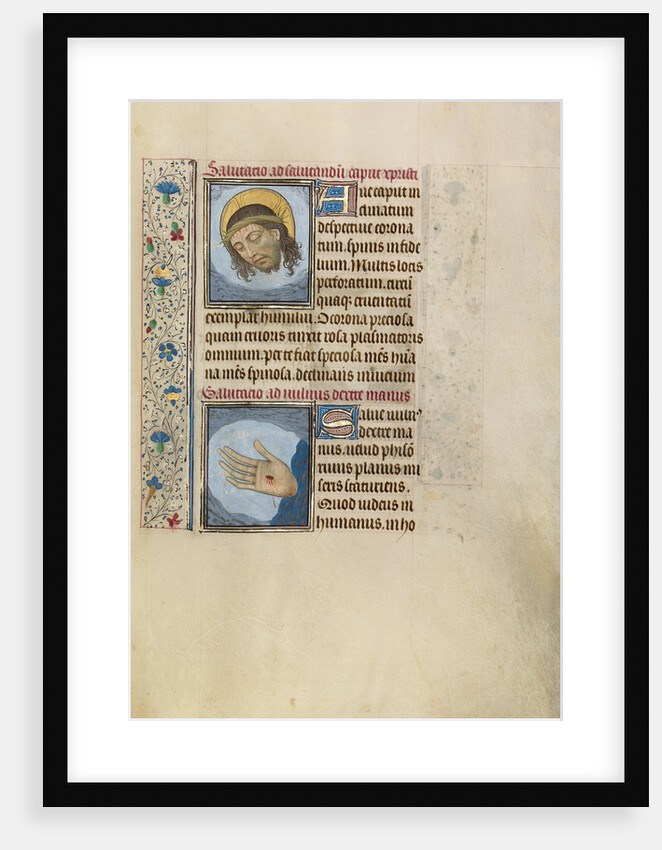 Salutacio ad salutandū caput xpristi
Aue caput in
clinatum
despectiue corona
tum. spinis infide
lium. Multis locis
perforatum. circū
quaqꝫ cruentatū
exemplar humiliū. O corona preciosa
quam cruoris tinxit rosa plasmatoris
omnium. per te fiat speciosa mēs hūa
na mēs spinosa. declinans
Salutacio ad uulnus dextre manus
Salue uuln
dextre ma
nus. uelud
riuus planus mi
seris scaturiens.
Quod uidens in
humanus. in ho